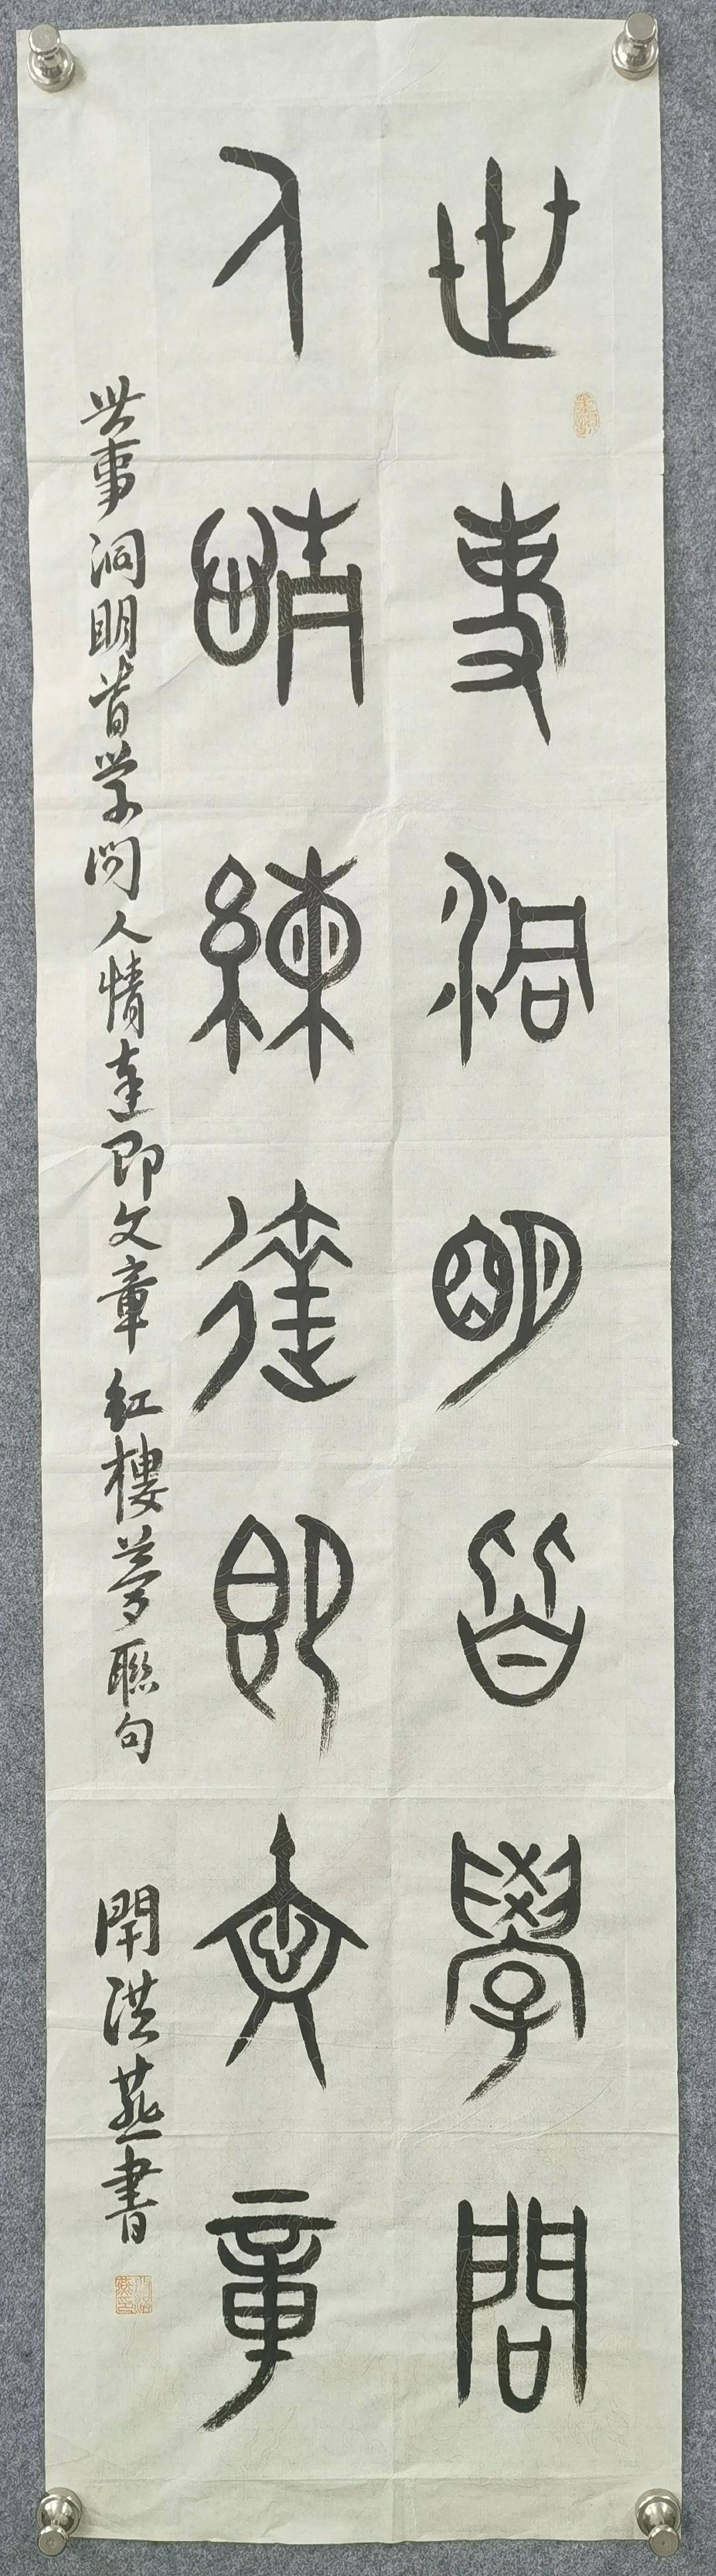 世事洞明皆學問
人情練達即文章
世事洞明皆学问人情達即文章 红樓夢聯句
開洪燕書